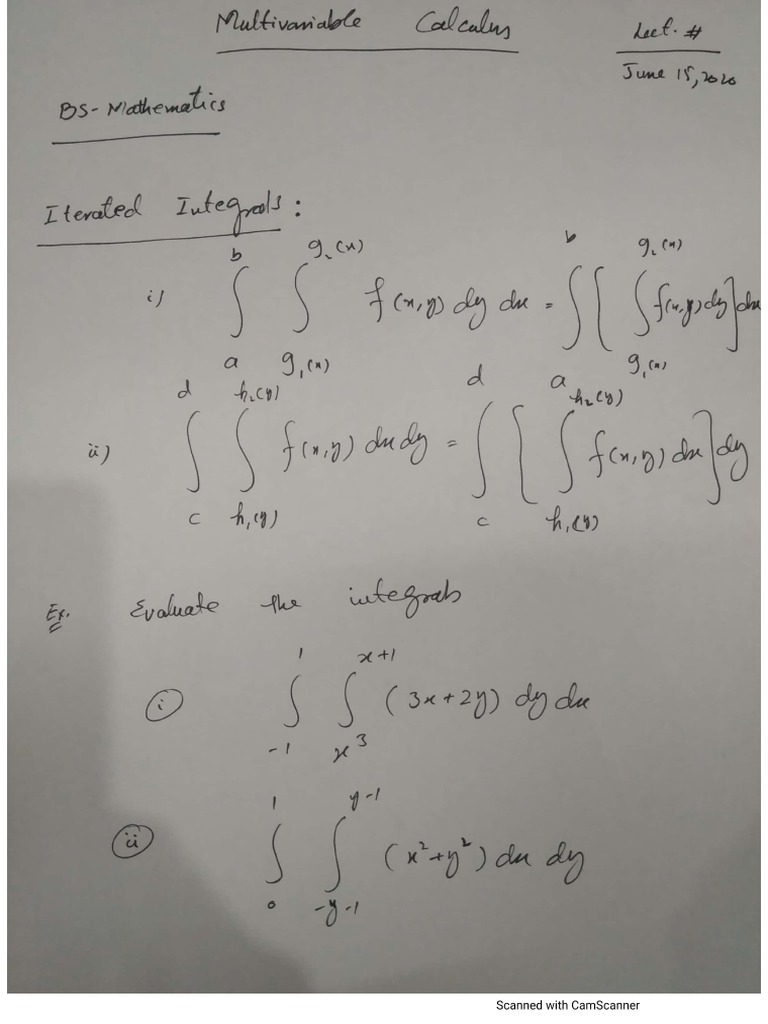 Multivariable Calculus Lect. #
June 15, 2020
BS-Mathematics
Iterated Integrals:
i) ∫_a^b ∫_{g₁(x)}^{g₂(x)} f(x,y) dy dx = ∫_a^b [ ∫_{g₁(x)}^{g₂(x)} f(x,y) dy ] dx
ii) ∫_c^d ∫_{h₁(y)}^{h₂(y)} f(x,y) dx dy = ∫_c^d [ ∫_{h₁(y)}^{h₂(y)} f(x,y) dx ] dy
Ex. Evaluate the integrals
(i) ∫_{-1}^{1} ∫_{x³}^{x+1} (3x+2y) dy dx
(ii) ∫_0^1 ∫_{-y-1}^{y-1} (x²+y²) dx dy
Scanned with CamScanner